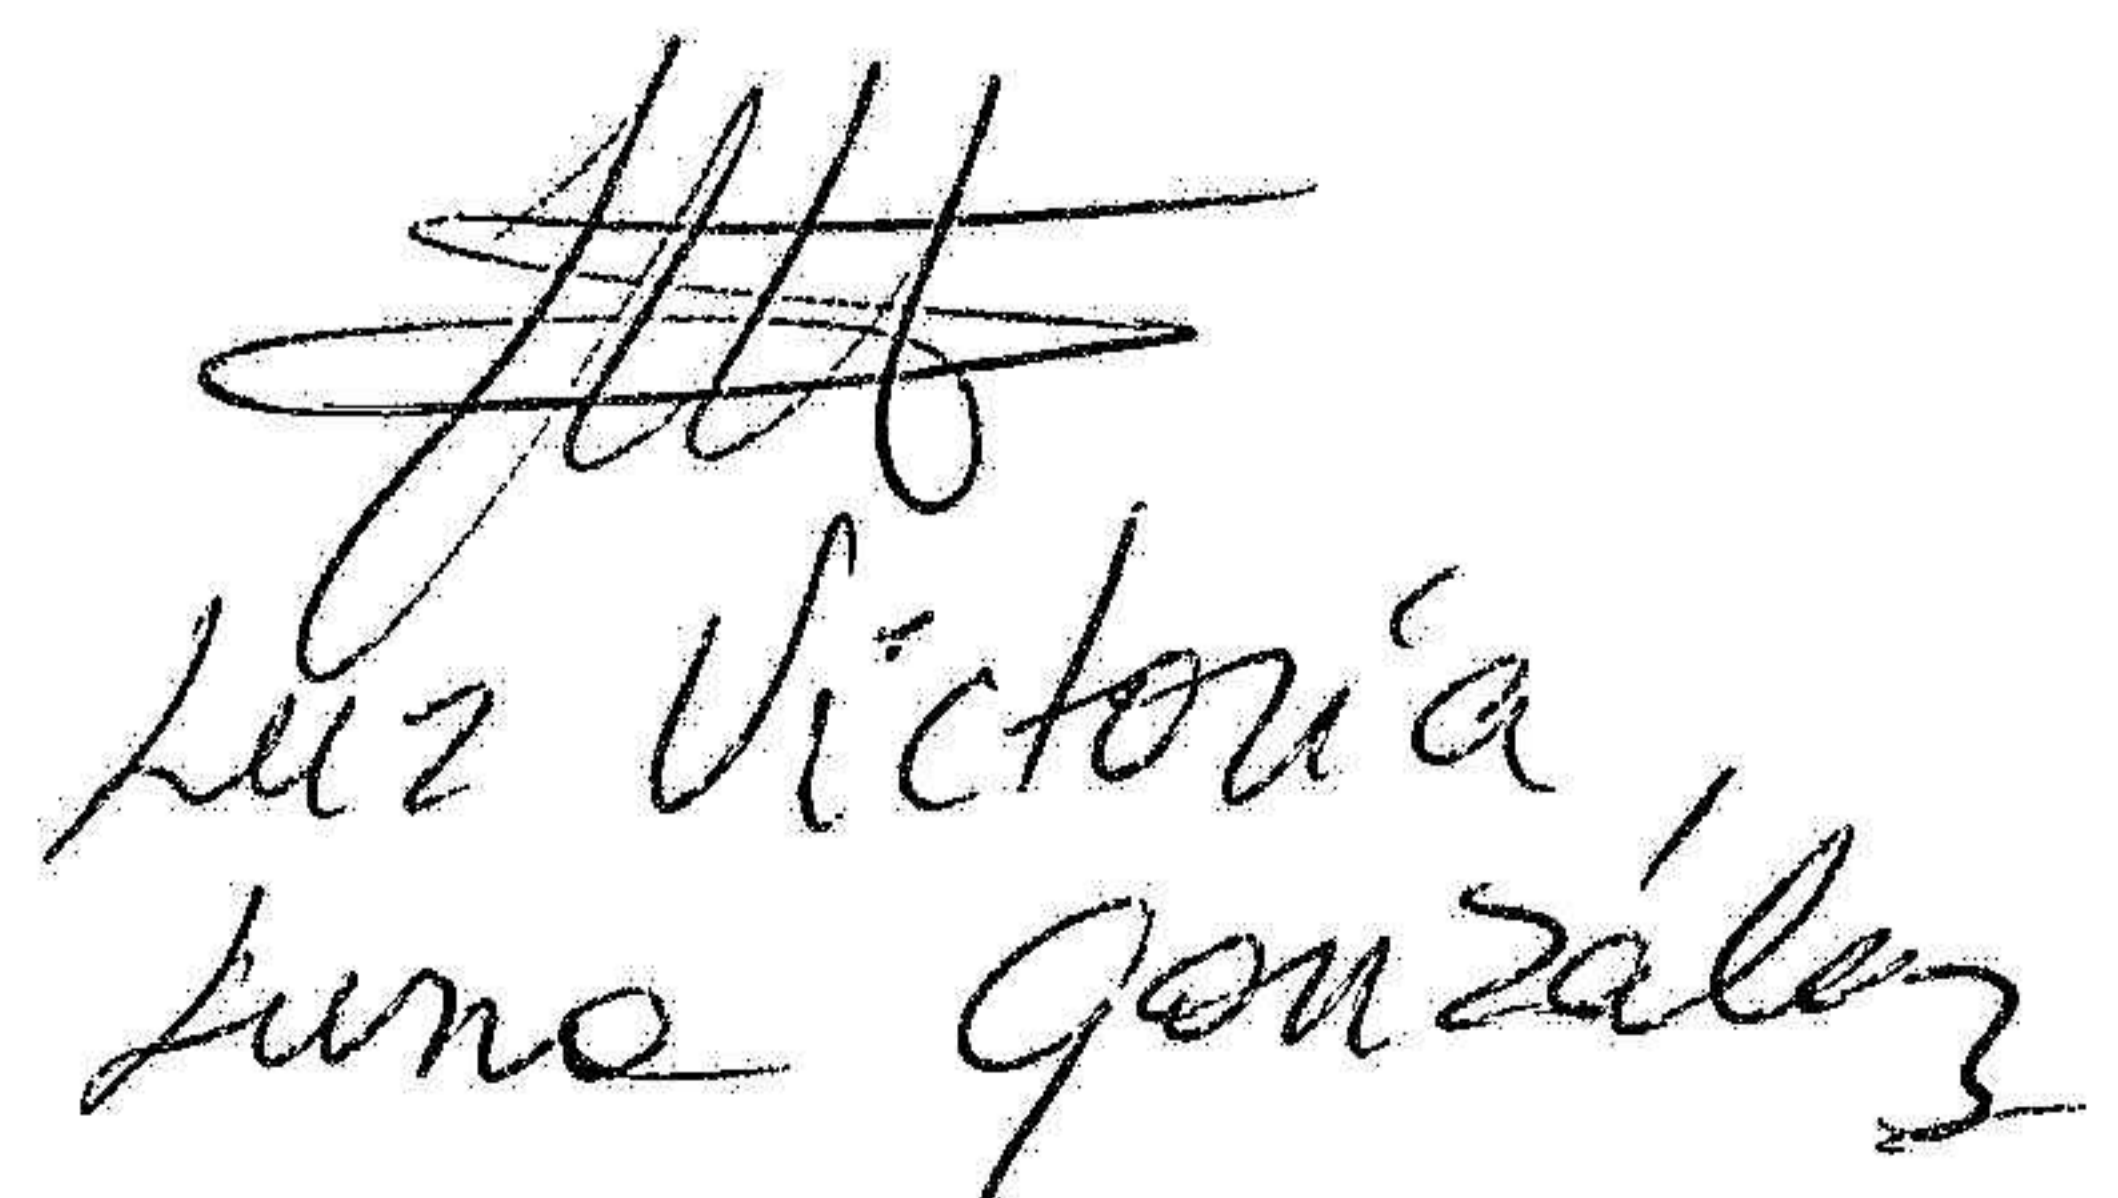 Luz Victoria
Luna González